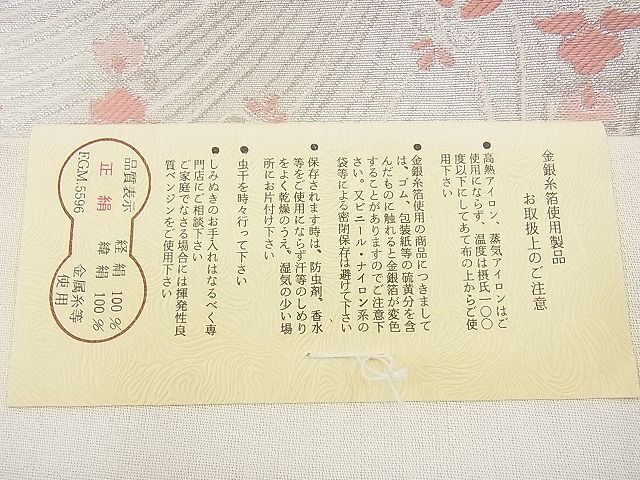 金銀糸箔使用製品
お取扱上のご注意
●高熱アイロン、蒸気アイロンはご
使用にならず、温度は摂氏一〇〇
度以下にしてあて布の上からご使
用下さい
●金銀糸箔使用の商品につきまして
は、ゴム、包装紙等の硫黄分を含
んだものに触れると金銀箔が変色
することがありますのでご注意下
さい。又ビニール・ナイロン系の
袋等による密閉保存は避けて下さい
●保存されます時は、防虫剤。香水
等をご使用にならず汗等のしめり
をよく乾燥のうえ。湿気の少い場
所にお片付け下さい
●虫干を時々行って下さい
●しみぬきのお手入れはなるべく専
門店にご相談下さい
ご家庭でなさる場合には揮発性良
質ベンジンをご使用下さい
品質表示
正絹
F.GM.5596
経 絹 100 %
緯 絹 100 %
金属糸等
使用